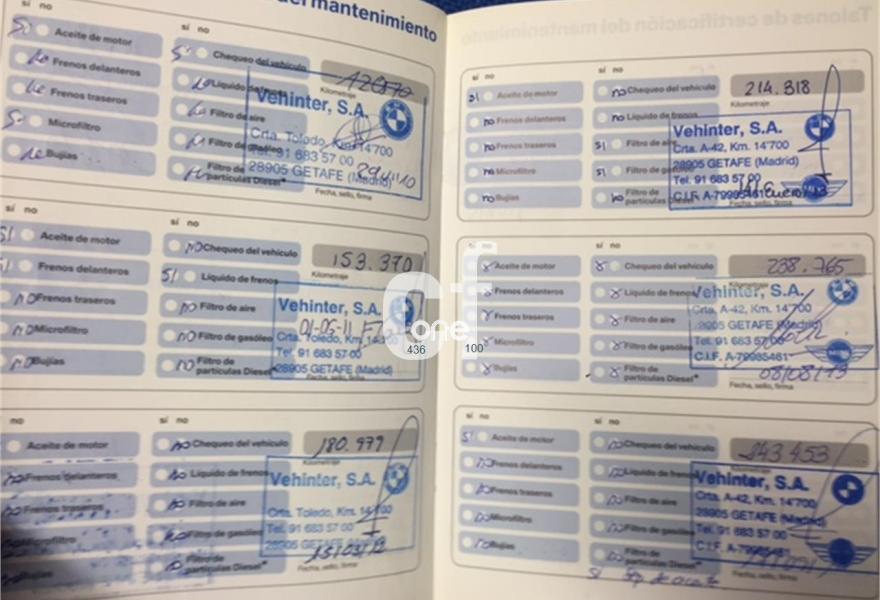 del mantenimiento
sí no
Sí Aceite de motor
no Frenos delanteros
no Frenos traseros
Sí Microfiltro
no Bujías
sí no
Sí Chequeo del vehículo
no Líquido de frenos
no Filtro de aire
no Filtro de gasóleo
no Filtro de
partículas Diesel*
Vehinter, S.A.
Crta. Toledo, Km. 14'700
Tel. 91 683 57 00
28905 GETAFE (Madrid)
Fecha, sello, firma
sí no
SI Aceite de motor
SI Frenos delanteros
NO Frenos traseros
NO Microfiltro
NO Bujías
sí no
NO Chequeo del vehículo
SI Líquido de frenos
NO Filtro de aire
NO Filtro de gasóleo
NO Filtro de
partículas Diesel*
153.370
Kilometraje
Vehinter, S.A.
01-05-11
Crta. Toledo, Km. 14'700
Tel. 91 683 57 00
28905 GETAFE (Madrid)
Fecha, sello, firma
no
Aceite de motor
no Frenos delanteros
no Frenos traseros
Microfiltro
Bujías
sí no
no Chequeo del vehículo
no Líquido de frenos
no Filtro de aire
no Filtro de gasóleo
no Filtro de
partículas Diesel*
180.979
Kilometraje
Vehinter, S.A.
Crta. Toledo, Km. 14'700
Tel. 91 683 57 00
28905 GETAFE (Madrid)
15/03/12
Fecha, sello, firma
Talones de certificación del mantenimiento
sí no
SI Aceite de motor
no Frenos delanteros
no Frenos traseros
no Microfiltro
no Bujías
sí no
no Chequeo del vehículo
no Líquido de frenos
SI Filtro de aire
SI Filtro de gasóleo
no Filtro de
partículas Diesel*
214.318
Kilometraje
Vehinter, S.A.
Crta. A-42, Km. 14'700
28905 GETAFE (Madrid)
Tel. 91 683 57 00
C.I.F. A-79985461
Enero
Fecha, sello, firma
sí no
Aceite de motor
Frenos delanteros
Frenos traseros
Microfiltro
Bujías
sí no
Chequeo del vehículo
Líquido de frenos
Filtro de aire
Filtro de gasóleo
Filtro de
partículas Diesel*
238.765
Vehinter, S.A.
Crta. A-42, Km. 14'700
28905 GETAFE (Madrid)
Tel. 91 683 57 00
C.I.F. A-79985461
08/08/13
Fecha, sello, firma
sí no
Sí Aceite de motor
no Frenos delanteros
no Frenos traseros
no Microfiltro
no Bujías
sí no
no Chequeo del vehículo
no Líquido de frenos
no Filtro de aire
no Filtro de gasóleo
no Filtro de
partículas Diesel*
Vehinter, S.A.
Crta. A-42, Km. 14'700
28905 GETAFE (Madrid)
Tel. 91 683 57 00
C.I.F. A-79985461
Fecha, sello, firma
one
436 100